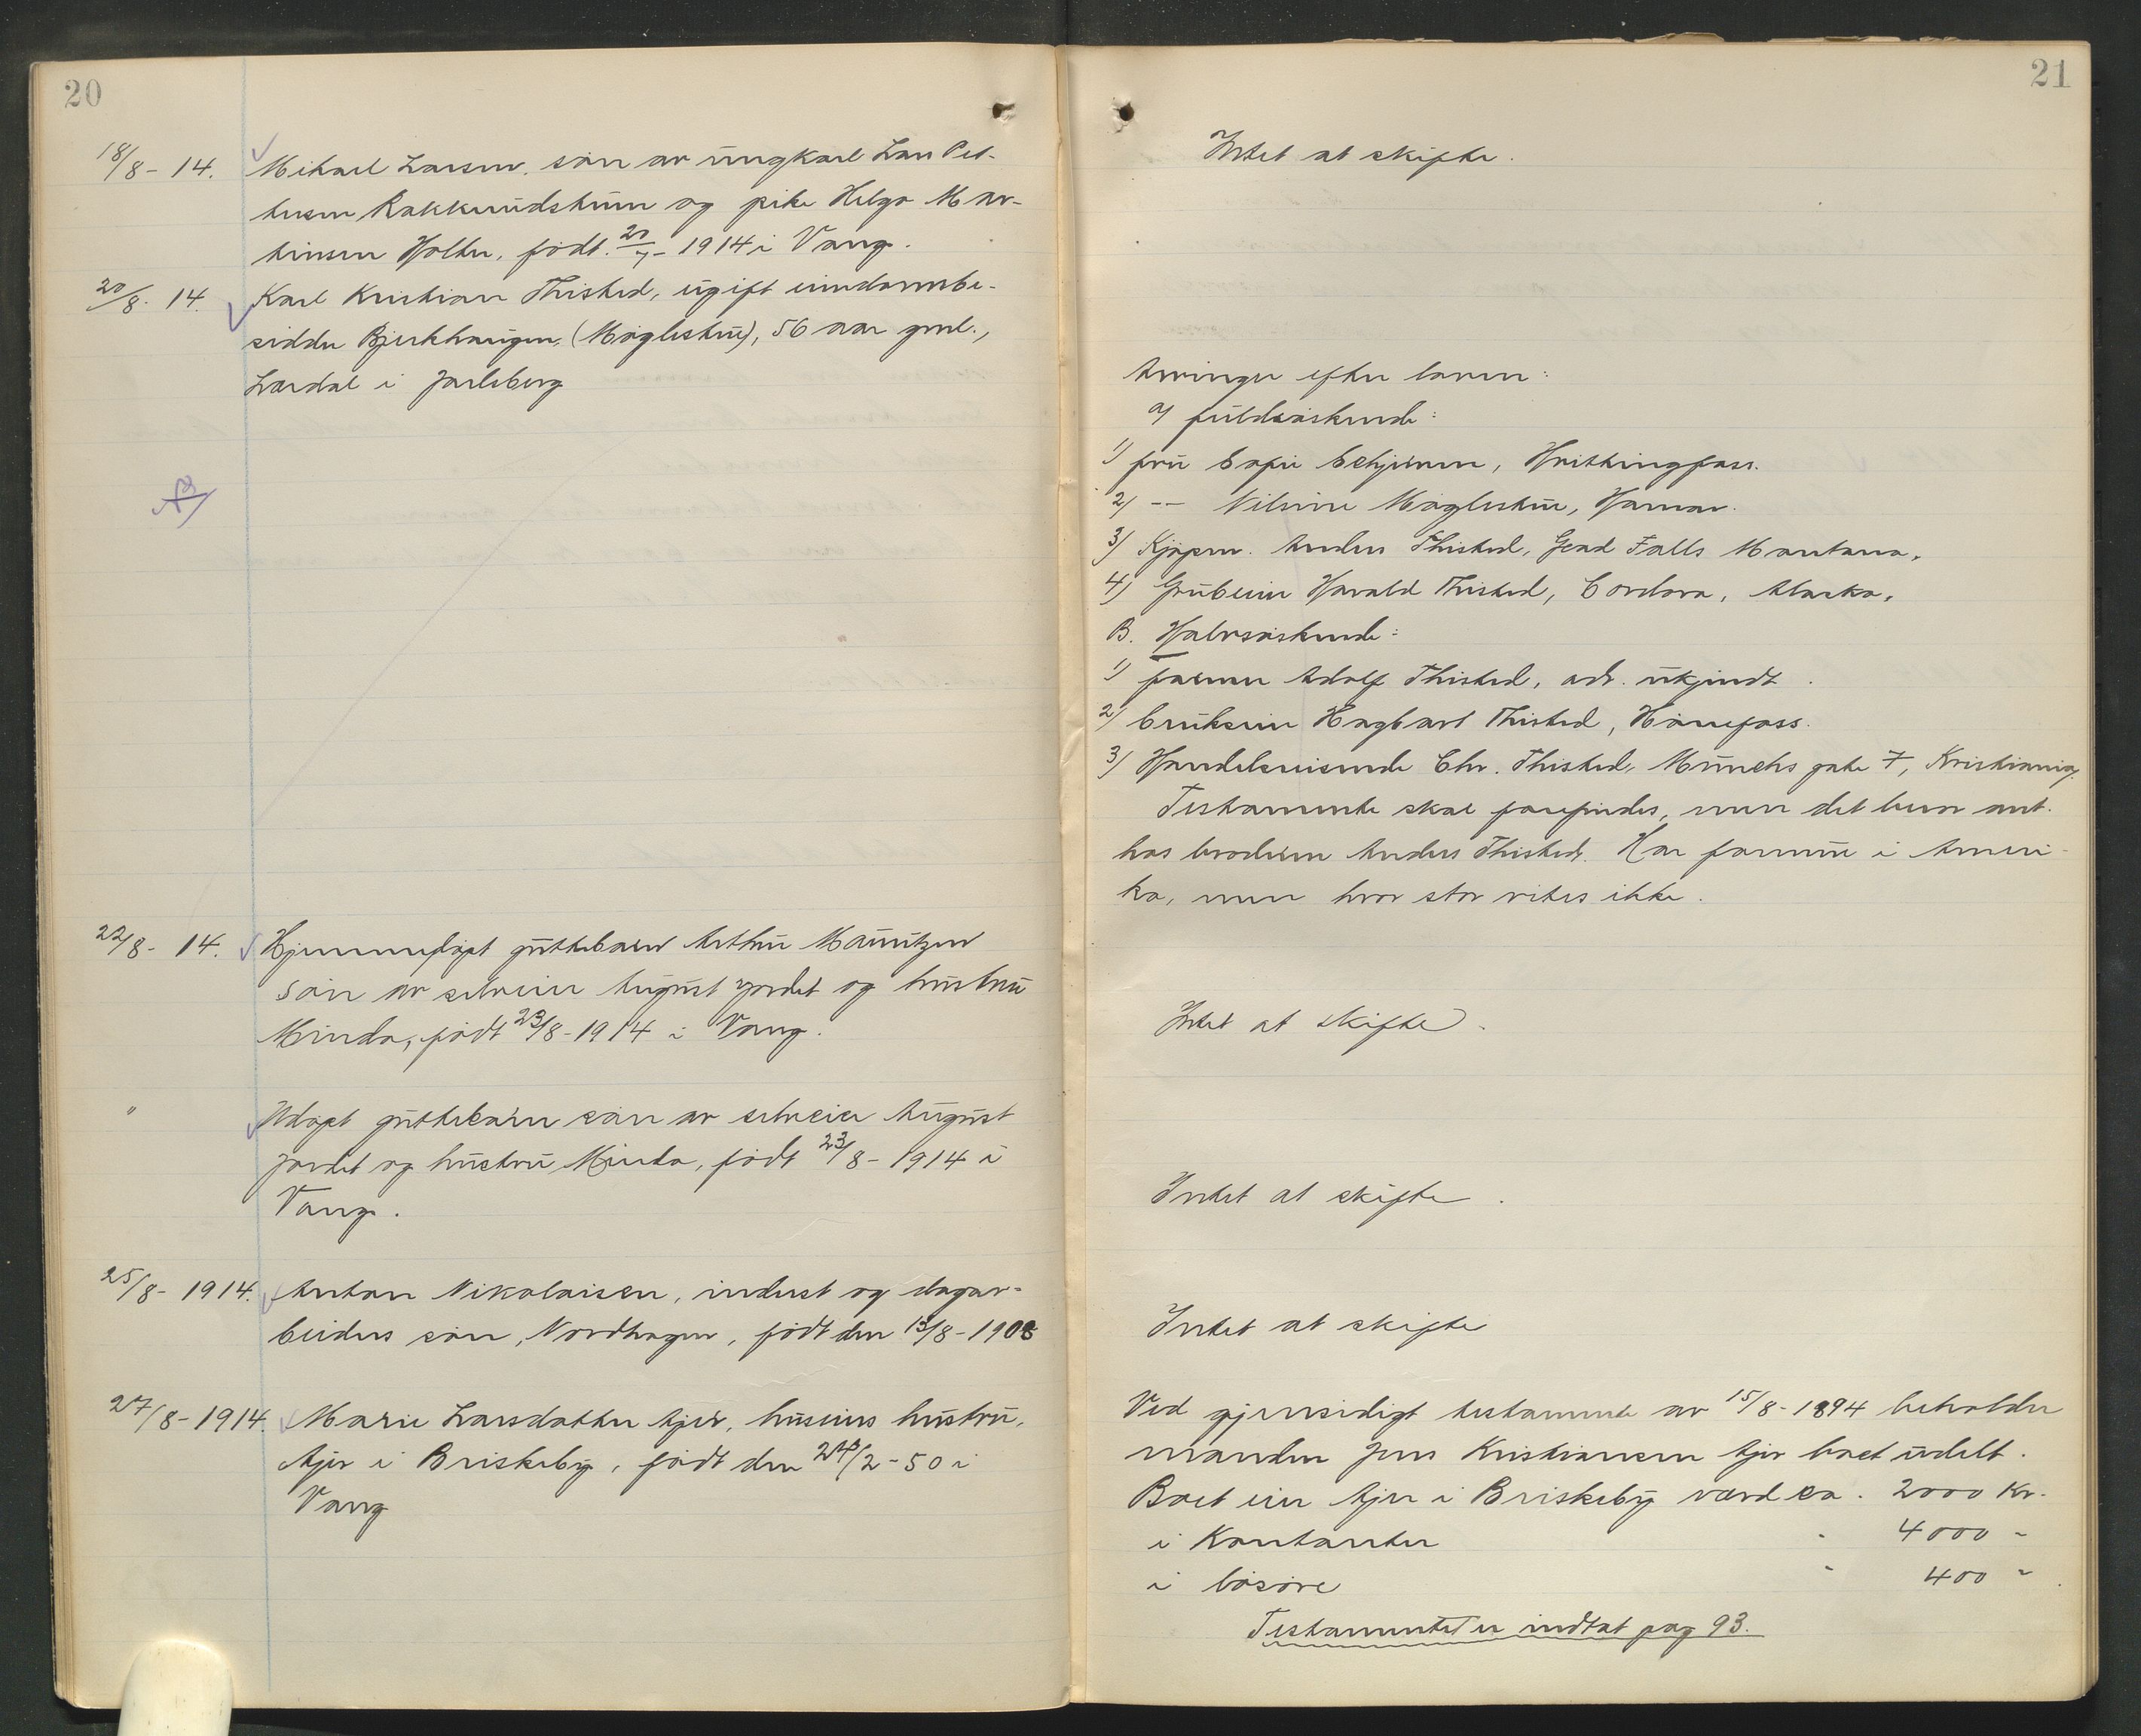 20
18/8 - 14. Mikael Larsen, sön av ungkarl Lars Pet-
tersen Rakkerudshum og pike Helga Mar-
tinsen Holter, födt 20/7 - 1914 i Vang.
20/8 - 14. Karl Kristian Thisted, ugift eiendomsbe-
sidder Bjerkhaugen, (Möglestue), 56 aar gml.,
Lardal i Jarlsberg
22/8 - 14. Hjemmedöpt guttebarn Arthur Mauritzen
sön av selveier August Jordet og hustru
Minda, födt 23/8 - 1914 i Vang.
" Udöpt guttebarn sön av selveier August
Jordet og hustru Minda, födt 23/8 - 1914 i
Vang.
25/8 - 1914. Anton Nikolaisen, inderst og dagar-
beiders sön, Nordhagen, födt den 13/8 - 1908
27/8 - 1914. Marie Larsdatter Ajer, huseiers hustru,
Ajer i Briskeby, födt den 24/2 - 50 i
Vang
21
Intet at skifte.
Arvinger efter loven:
a) fuldsöskende:
1) fru Sofie Schjerven, Hvittingfoss.
2) -- Nilsine Möglestue, Hamar.
3) Kjöpm. Anders Thisted, Great Falls Montana,
4) Grubeeier Harald Thisted, Cordova, Alaska,
B. Halvsöskende:
1) farver Adolf Thisted, adr. ukjendt.
2) brukseier Hagbart Thisted, Hönefoss.
3) Handelsreisende Chr. Thisted, Munchs gate 7, Kristiania,
Testamente skal forefindes, men det beror ant.
hos broderen Anders Thisted. Har formue i Ameri-
ka, men hvor stor vites ikke.
Intet at skifte.
Intet at skifte.
Intet at skifte
Ved gjensidigt testamente av 15/8 - 1894 beholder
manden Jens Kristiansen Ajer boet udelt.
Boet eier Ajer i Briskeby værd ca. 2000 Kr.
i Kontanter " 4000 "
i lösöre " 400 "
Testamentet er indtat pag 93.